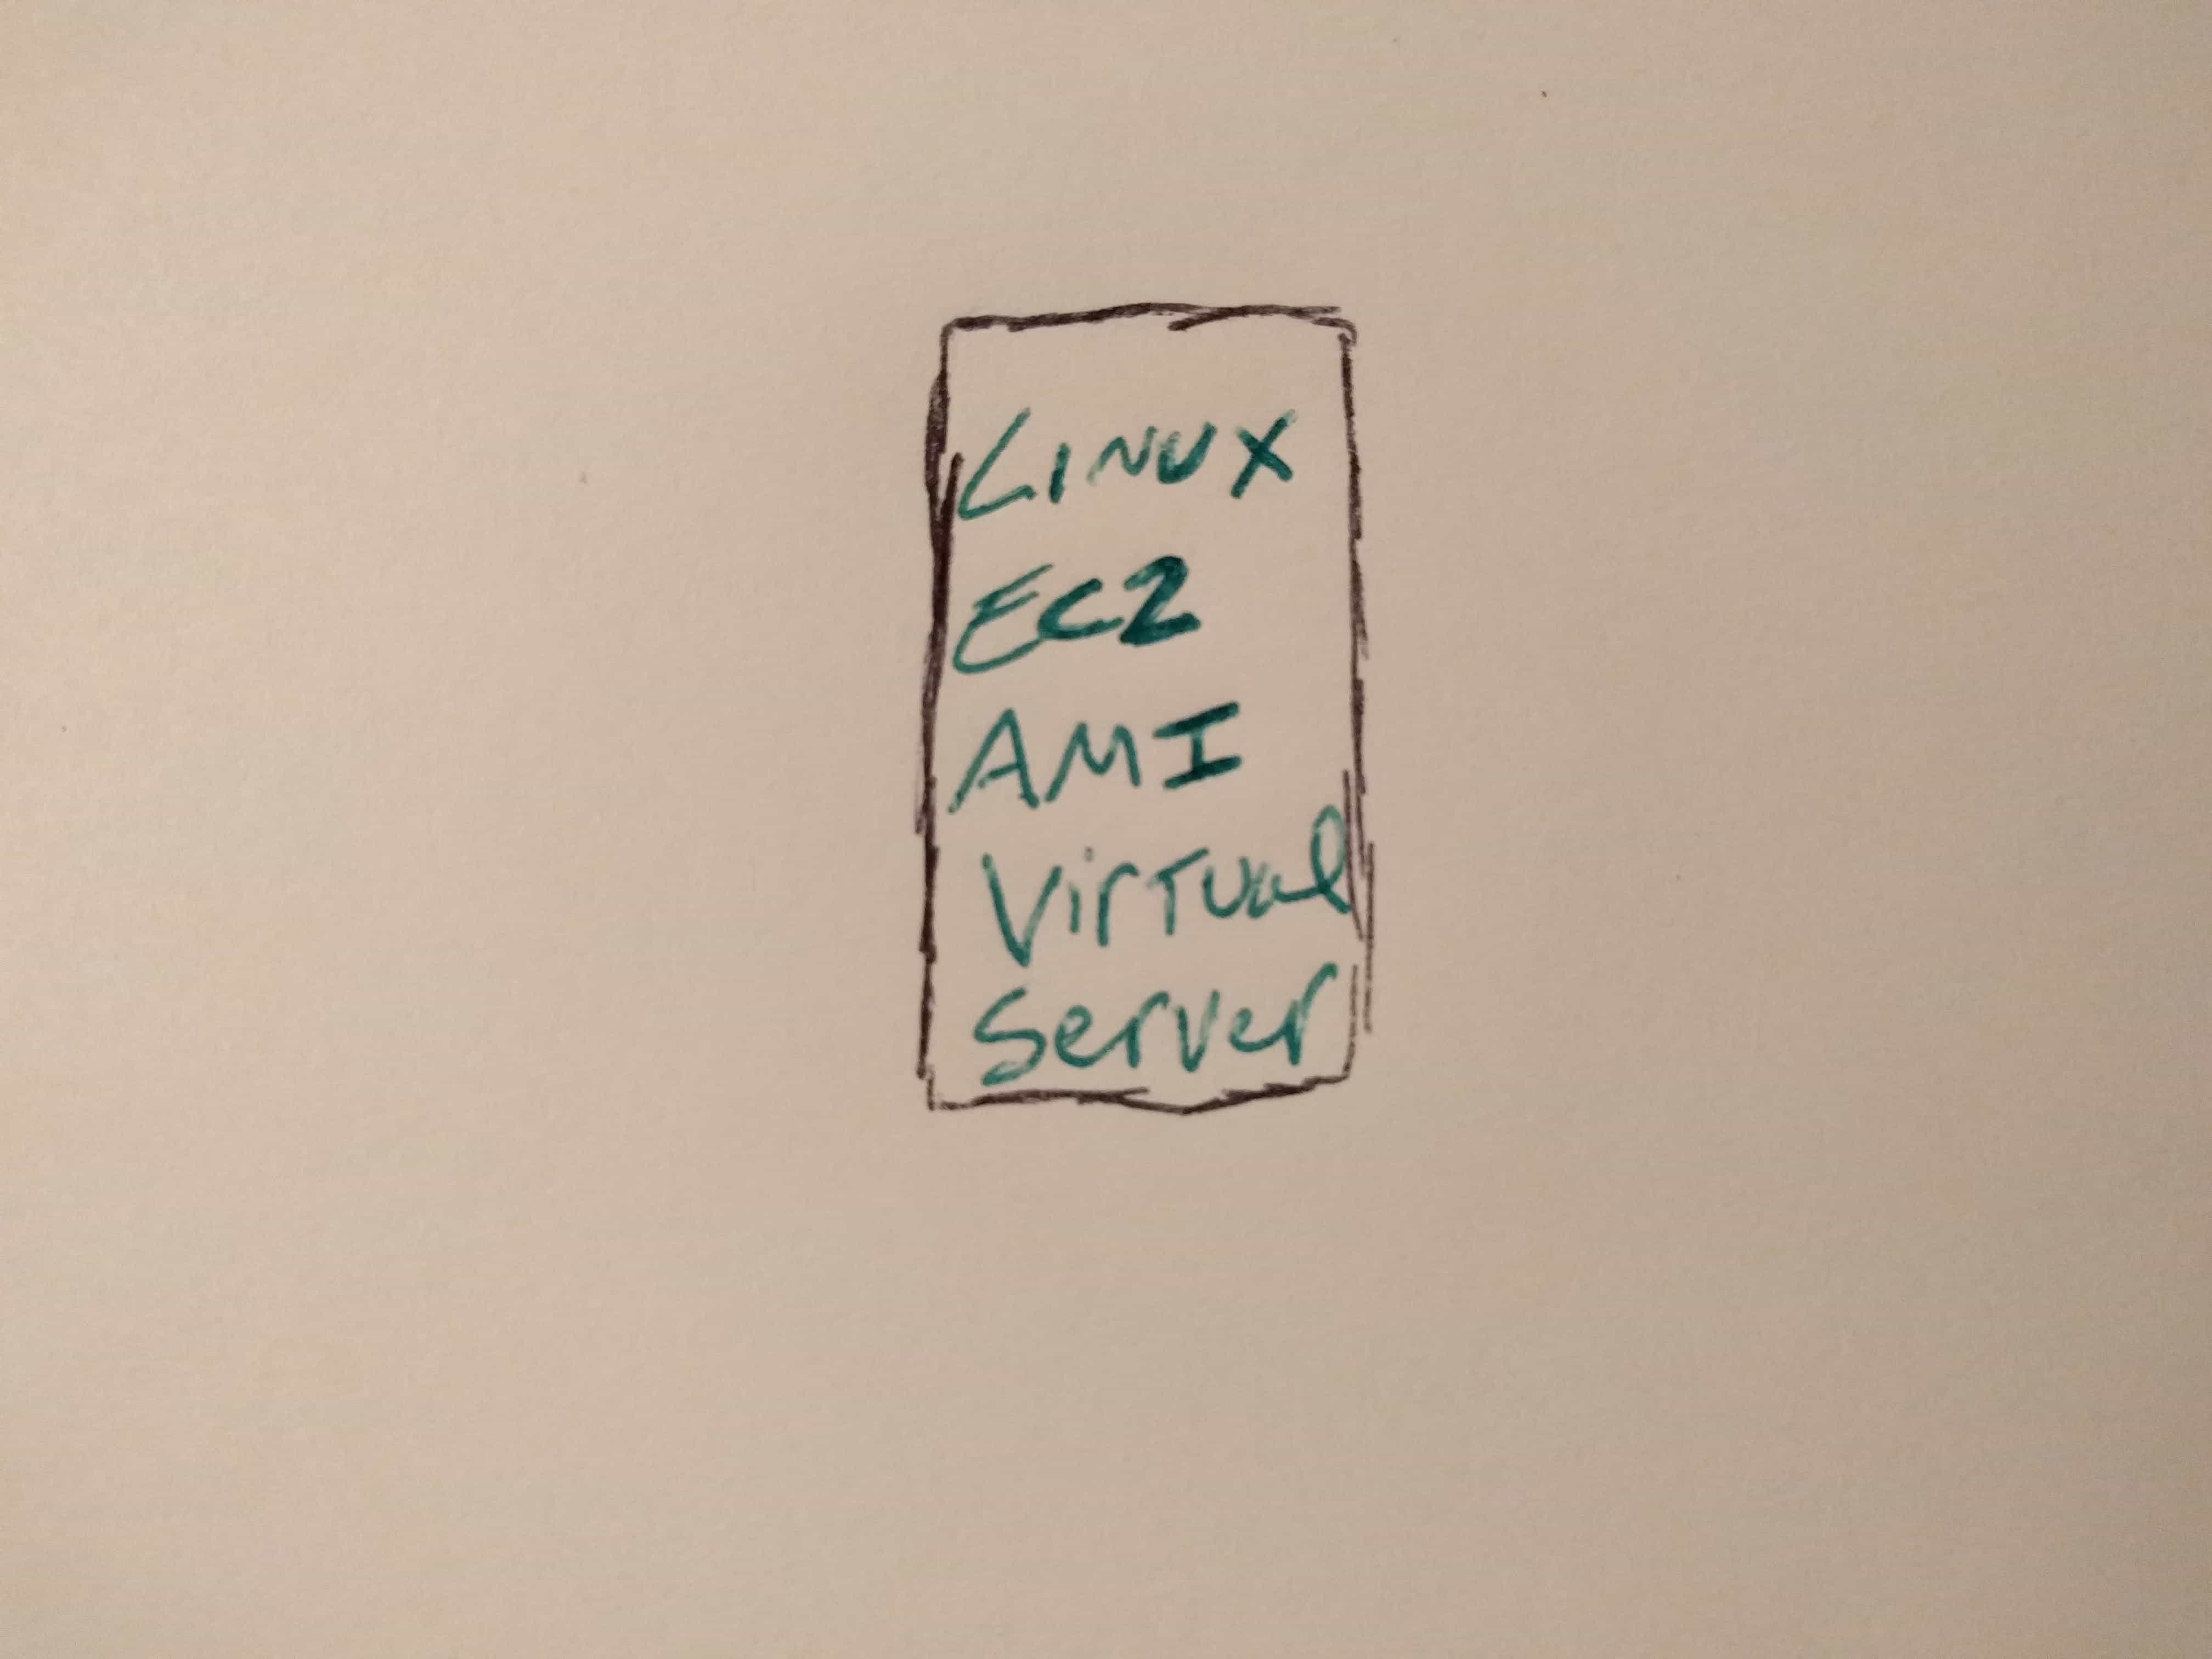 LINUX
EC2
AMI
Virtual
Server